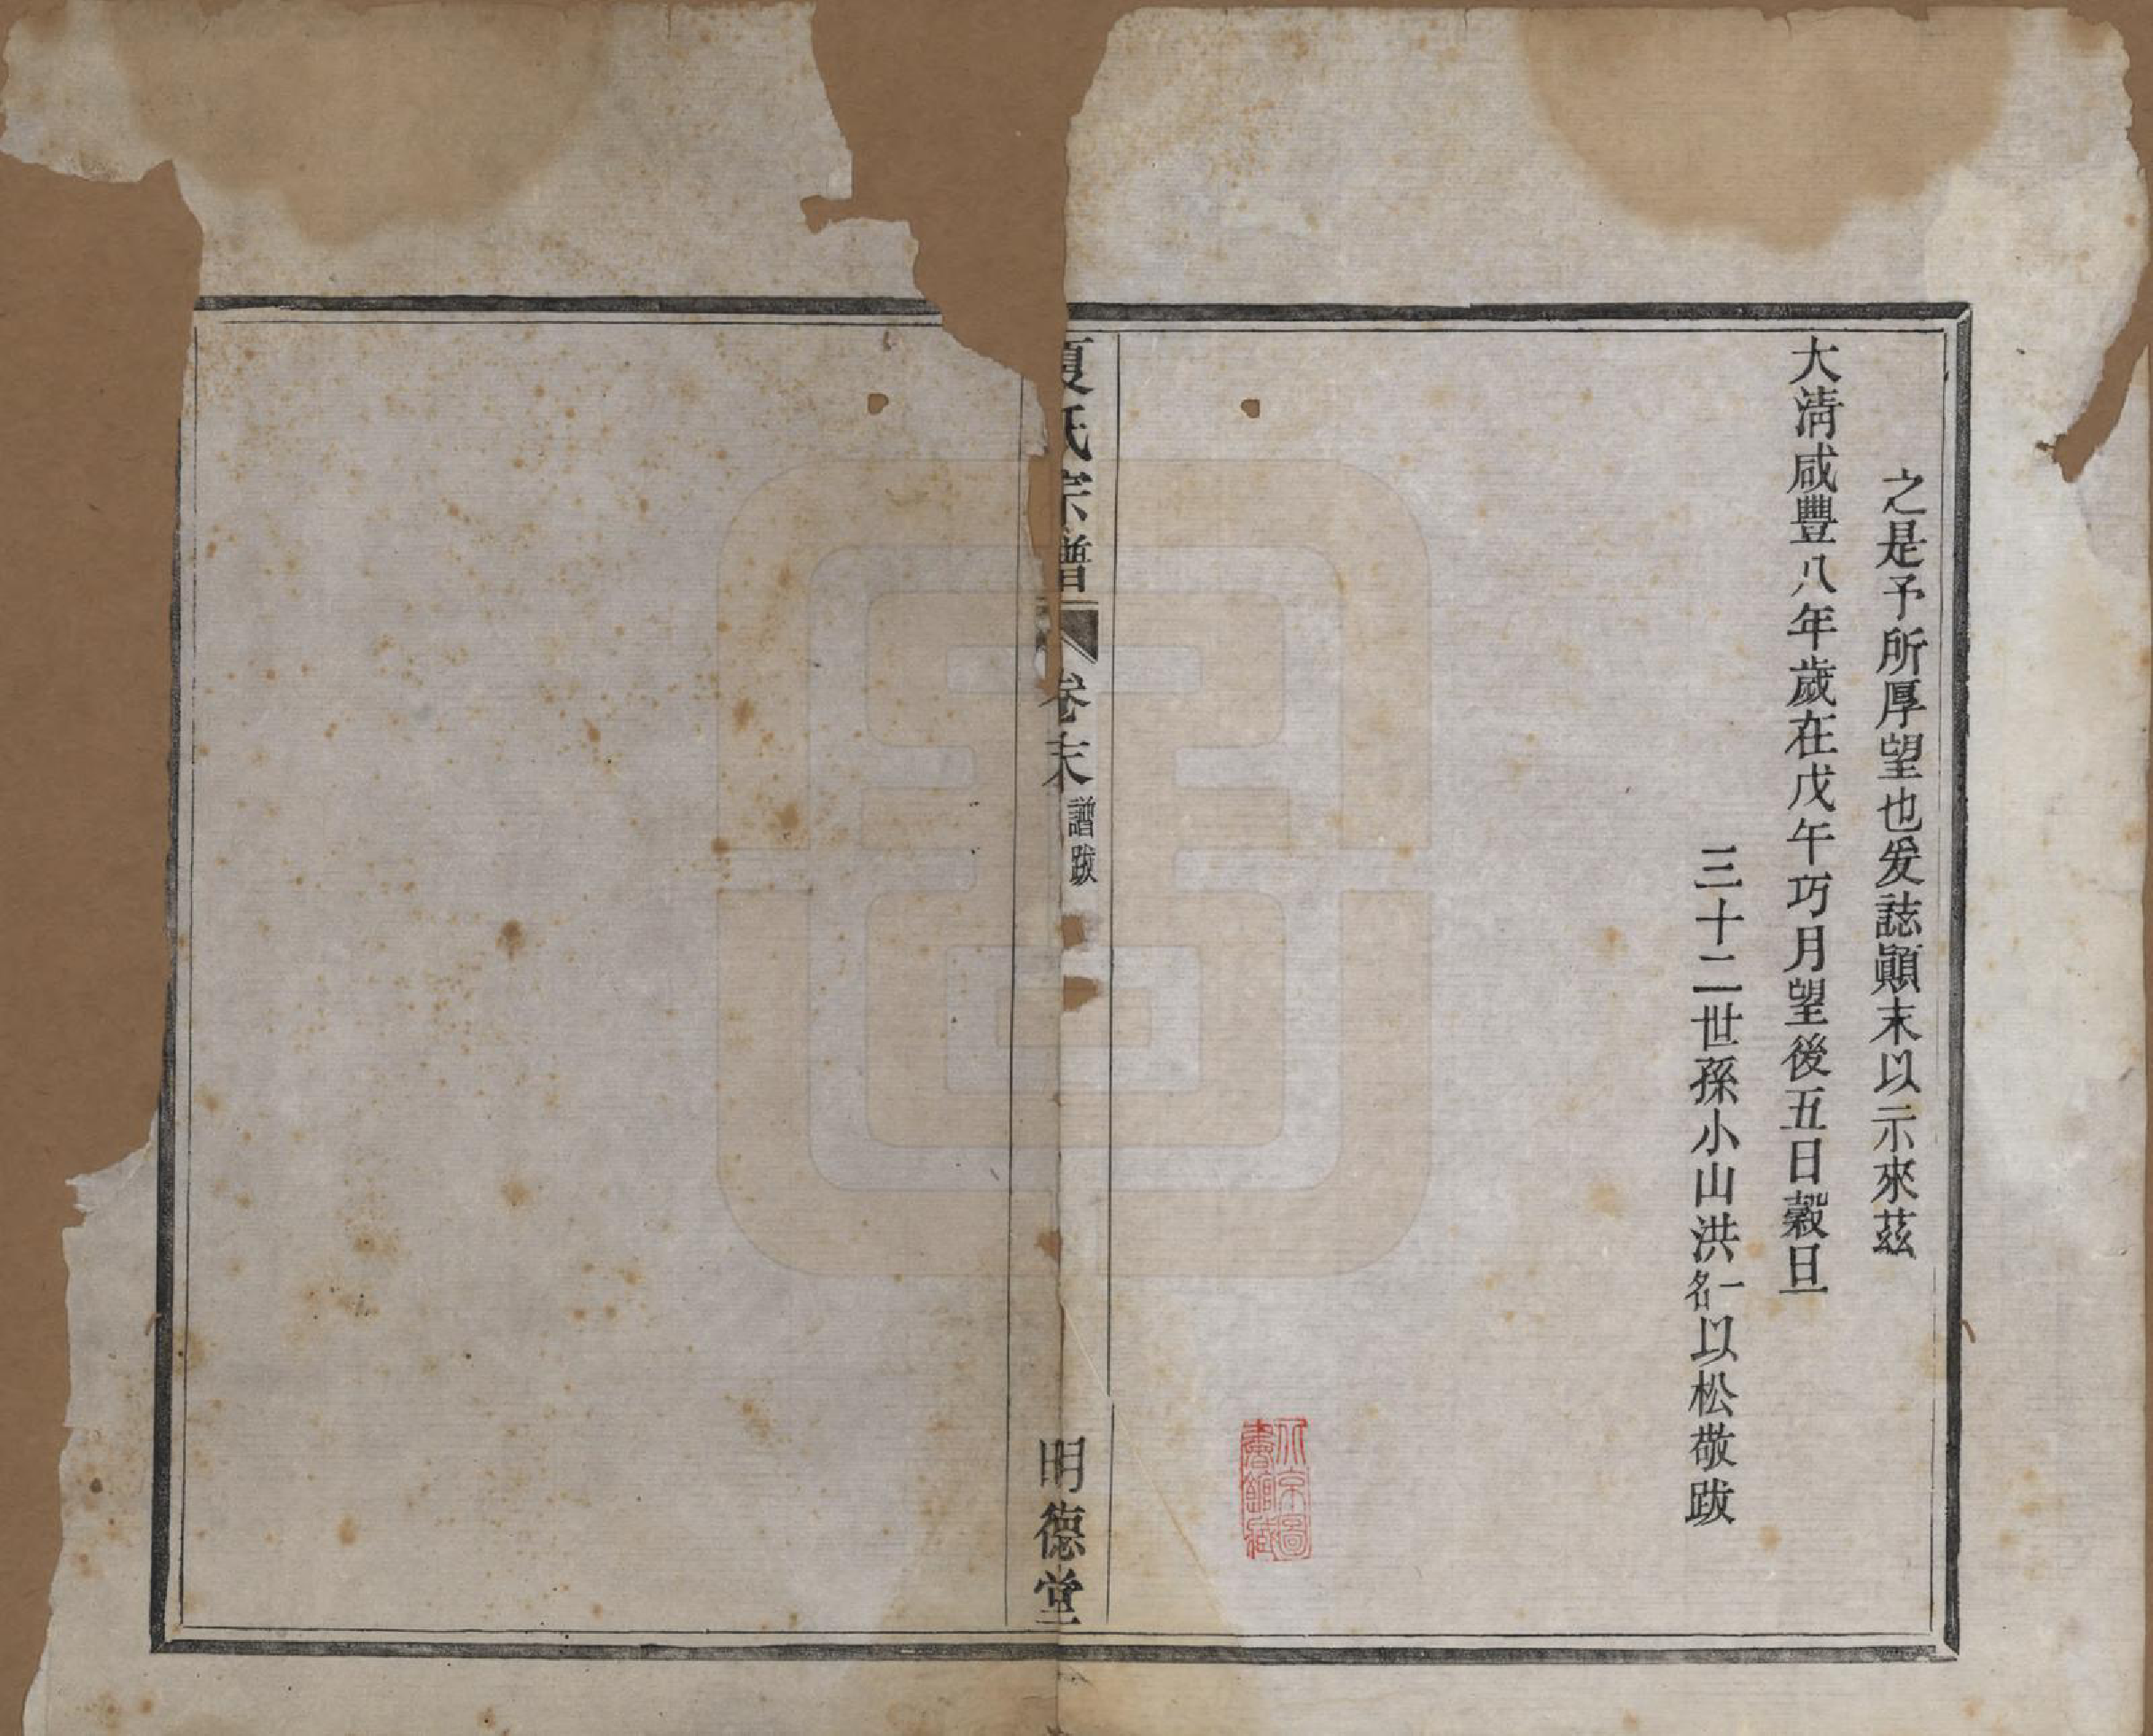 之是予所厚望也爰誌顚末以示來茲
大淸咸豐八年歲在戊午巧月望後五日穀旦
三十二世孫小山洪名一以松敬跋
夏氏宗譜
卷末
譜跋
明德堂
北京圖書館藏